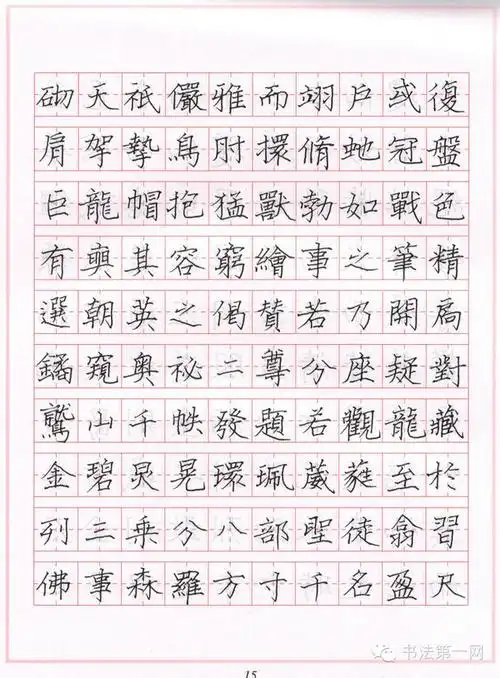 砌天祇儼雅而翊戶或復
肩挐摯鳥肘擐脩虵冠盤
巨龍帽抱猛獸勃如戰色
有奭其容窮繪事之筆精
選朝英之偈贊若乃開扃
鐍窺奧祕二尊分座疑對
鷲山千帙發題若觀龍藏
金碧炅晃環珮葳蕤至於
列三乘分八部聖徒翕習
佛事森羅方寸千名盈尺
书法第一网
15